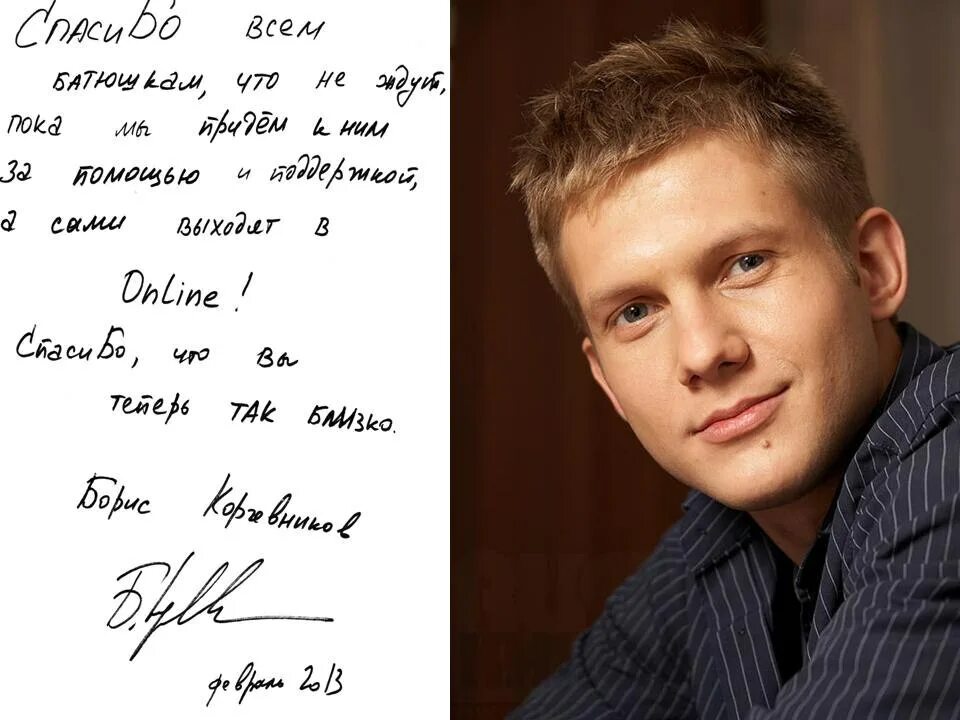 Спасибо всем
батюшкам, что не ждут,
пока мы придём к ним
за помощью и поддержкой,
а сами выходят в
Online!
Спасибо, что вы
теперь так близко.
Борис Корчевников
февраль 2013